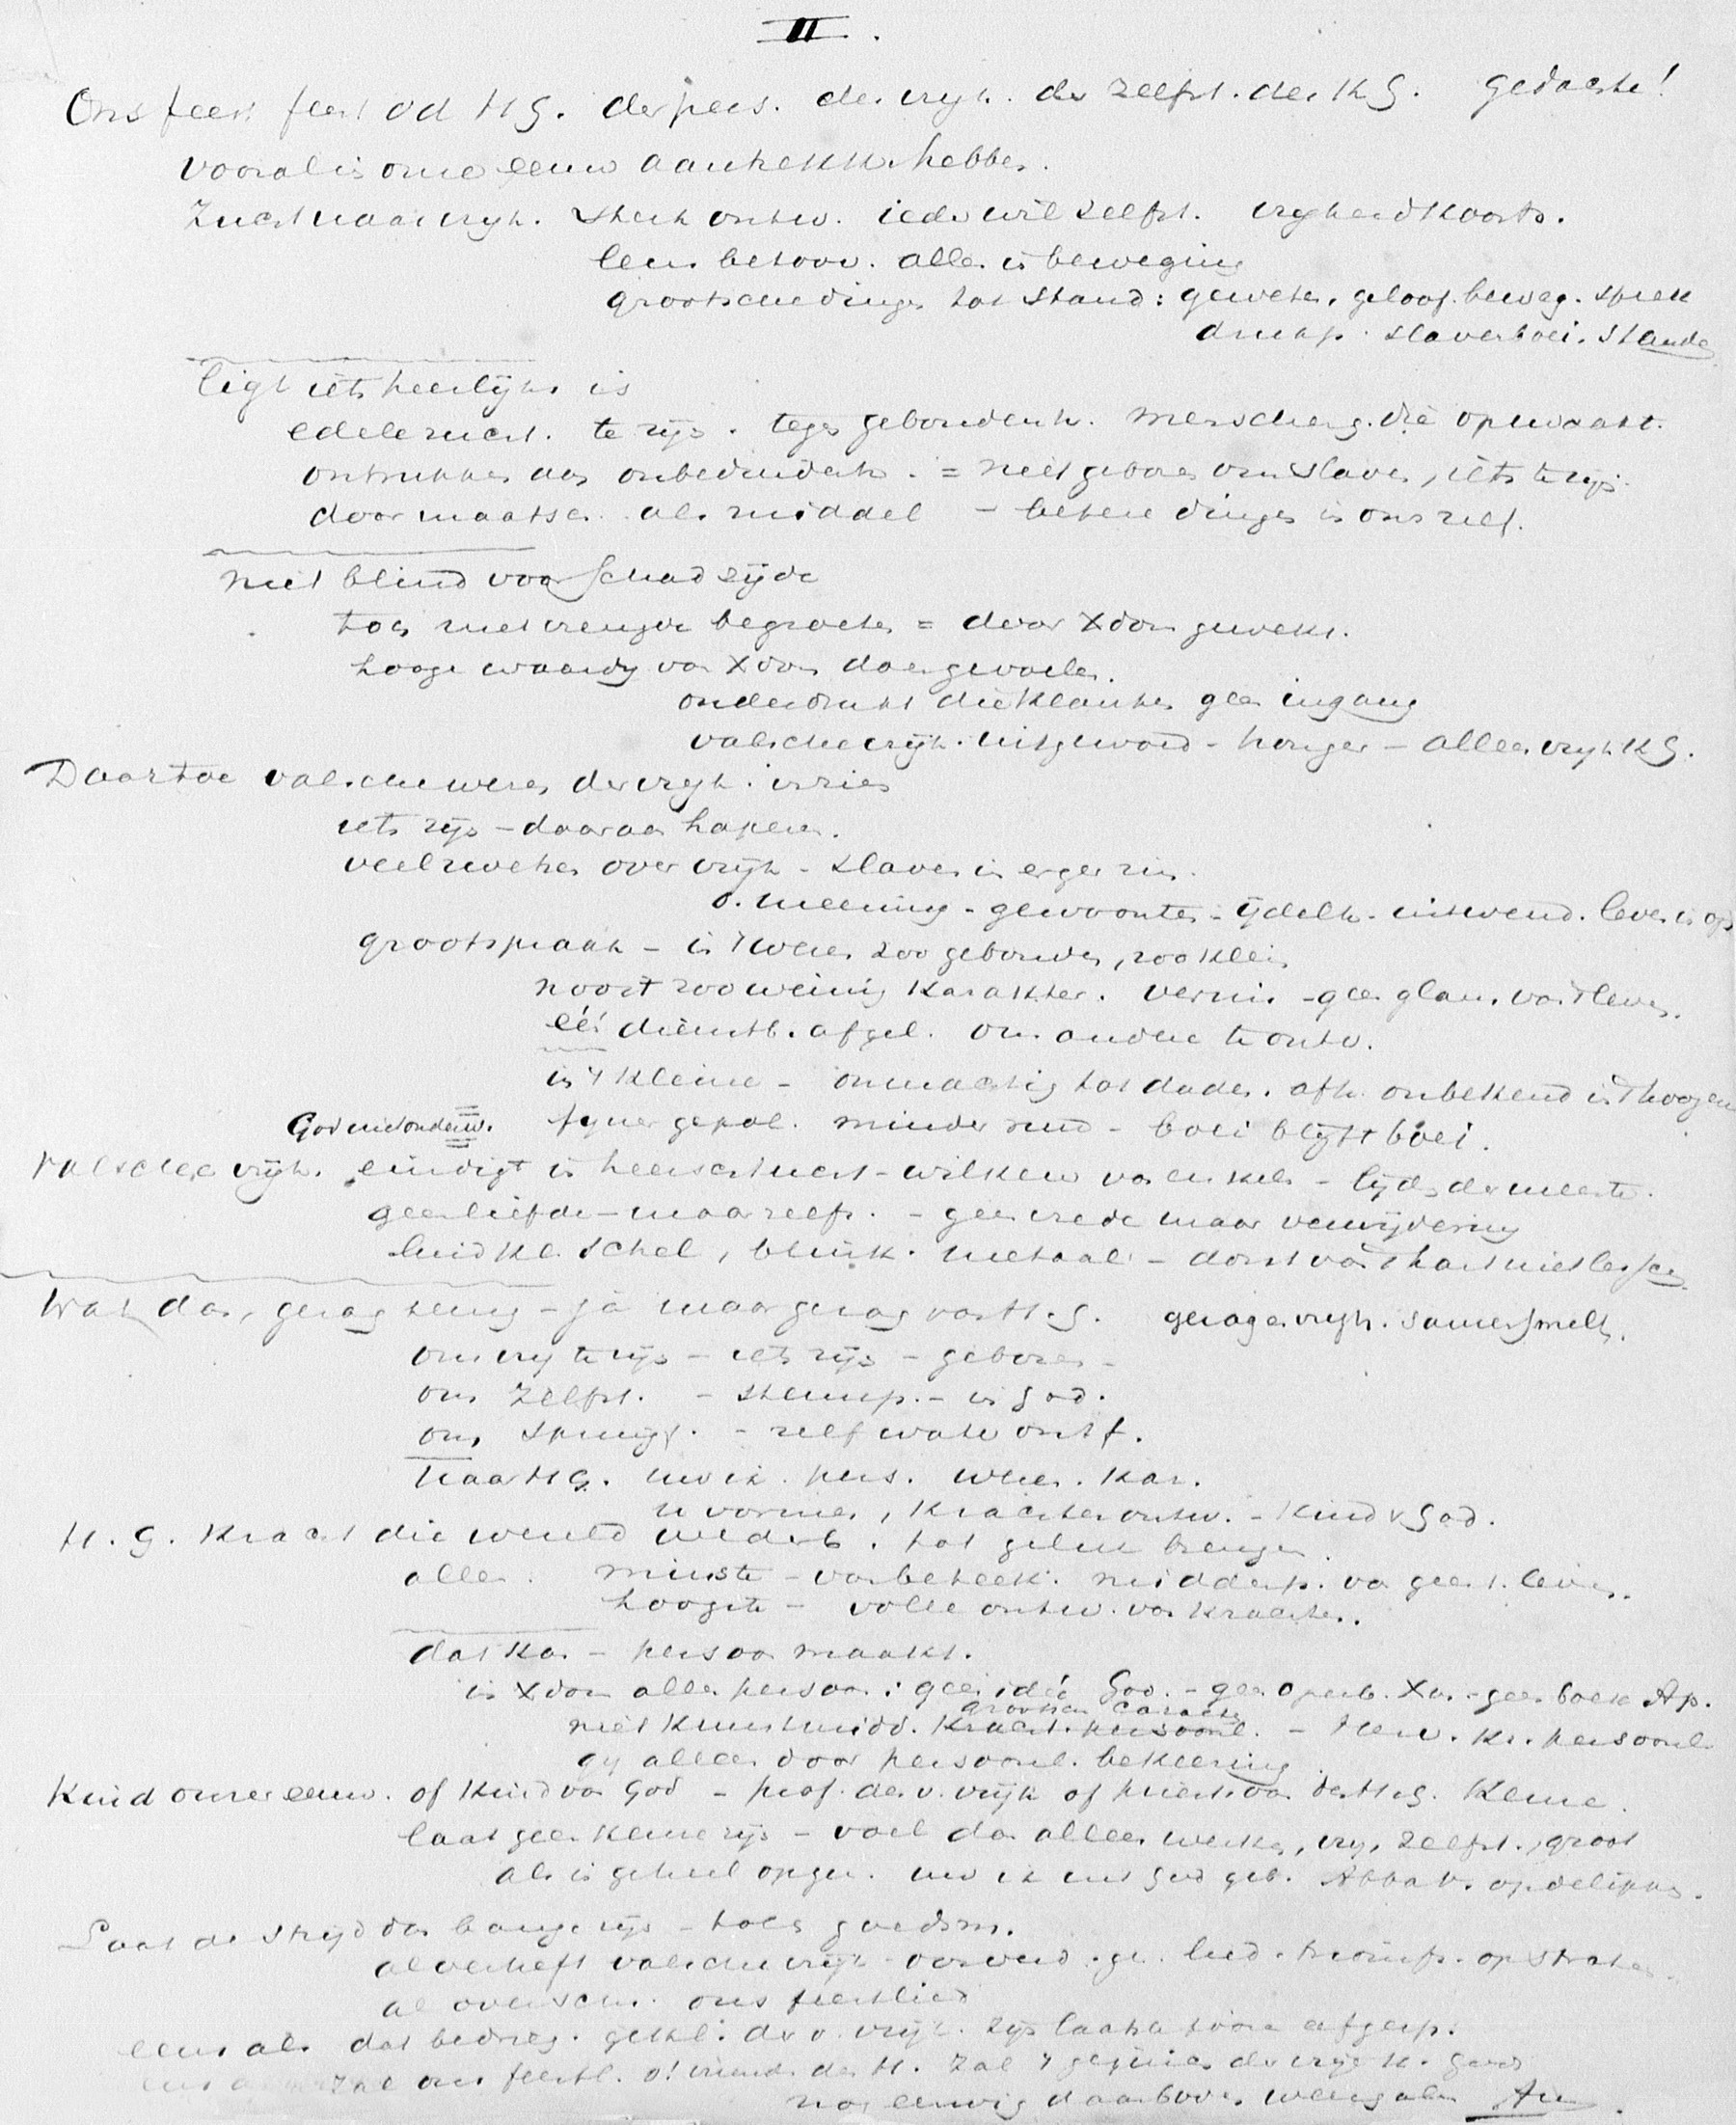 II.
Ons feest feest v d H G. der pers. der vryh. der zelfst. der K G. gedachte!
vooral in onze eeuw aantrekk. hebben.
Zucht naar vryh. sterk ontw. ieder wil zelfst. vryheidkoorts.
leus betoov. alles is beweging
grootsche dingen tot stand: geweten, geloof. beweg. spreek
drukp. slavenboei. stande
ligt iets heerlijks in
edele zucht. te zijn. tegen gebondenh. menscheng. die opwaakt.
ontrukken aan onbeduidenh. = niet geboren om slaven, iets te zijn.
door maatsch. als middel – betere dingen in ons zelf.
niet blind voor schaduwzijde
toch met vreugde begroeten = door Xdom gewekt.
hooge waardy van Xdom doen gevoelen.
onderdrukt die klanken geen ingang
valsche vrijh. uitgewoed – honger – alleen vryh KG.
Daartoe valsche wezen der vryh. inzien
iets zijn – daaraan haperen.
veel zwetsen over vrijh – slaven in erger zin.
o. meening – gewoonten – ijdelh. uitwend. leven in op
grootspraak – in 't wezen zoo gebonden, zoo klein
nooit zoo weinig karakter. vernis – geen glans van 't leven.
één dienstb. afgel. om andere te ontv.
in 't kleine – onmachtig tot daden. afh. onbekend in 't hoogere
God niet onderw. fyner gepol. minder ruw – boei blyft boei.
Valsche vrijh. eindigt in heerschzucht – willekeur van enkelen – lijden der meeste.
geen liefde – maar zelfz. – geen vrede maar verwijdering
luidkl. schel, blink. metaal – dorst van 't hart niet lesschen
Wat dan, gezag terug – ja maar gezag van H. G. gezag en vryh. samensmelt.
om vry te zijn – iets zijn – geboren –
om zelfst. – stemp. – in God.
om springf. – zelf water ontf.
Naar HG. uw ik. pers. wezen. kar.
u vormen, krachten ontw. – Kind v God.
H. G. kracht die wereld wederb. tot geluk brengen.
alles. minste – van beteek. middenp. van geest. leven.
hoogste – volle ontw. van krachten.
dat kan – persoon maakt.
in Xdom alles persoon: geen idée God. – geen openb. Xus. – geen boek Ap.
niet kunstmidd. kracht persoonl. – 't eeuw. kr. persoonl.
gy alleen door persoonl. bekeering.
Kind onzer eeuw. of kind van God – prof. der v. vrijh of priest. van den H G. Keuze.
laat geen keuze zijn – voel dan alleen werken, vry, zelfst., groot
als in geheel opgen. uw ik uit God geb. Abba V. op de lippen.
Laat de strijd dan bange zijn – toch goedsm.
al verheft valsche vrijh verward. ge. lied. triomf. op straten.
al overschr. ons feestlied
eens als dat bedrieg. gekl. der v. vrijh. zijn laatste toon afgesp.
zal ons feestl. o! vriend. des H. zal 't gejuich der vrye K. Gods
nog eeuwig daarboven weergalm. Am